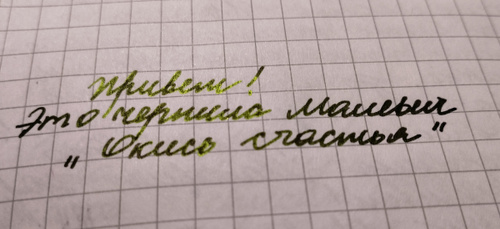 Привет!
Это чернила Малевич
„Окись счастья"